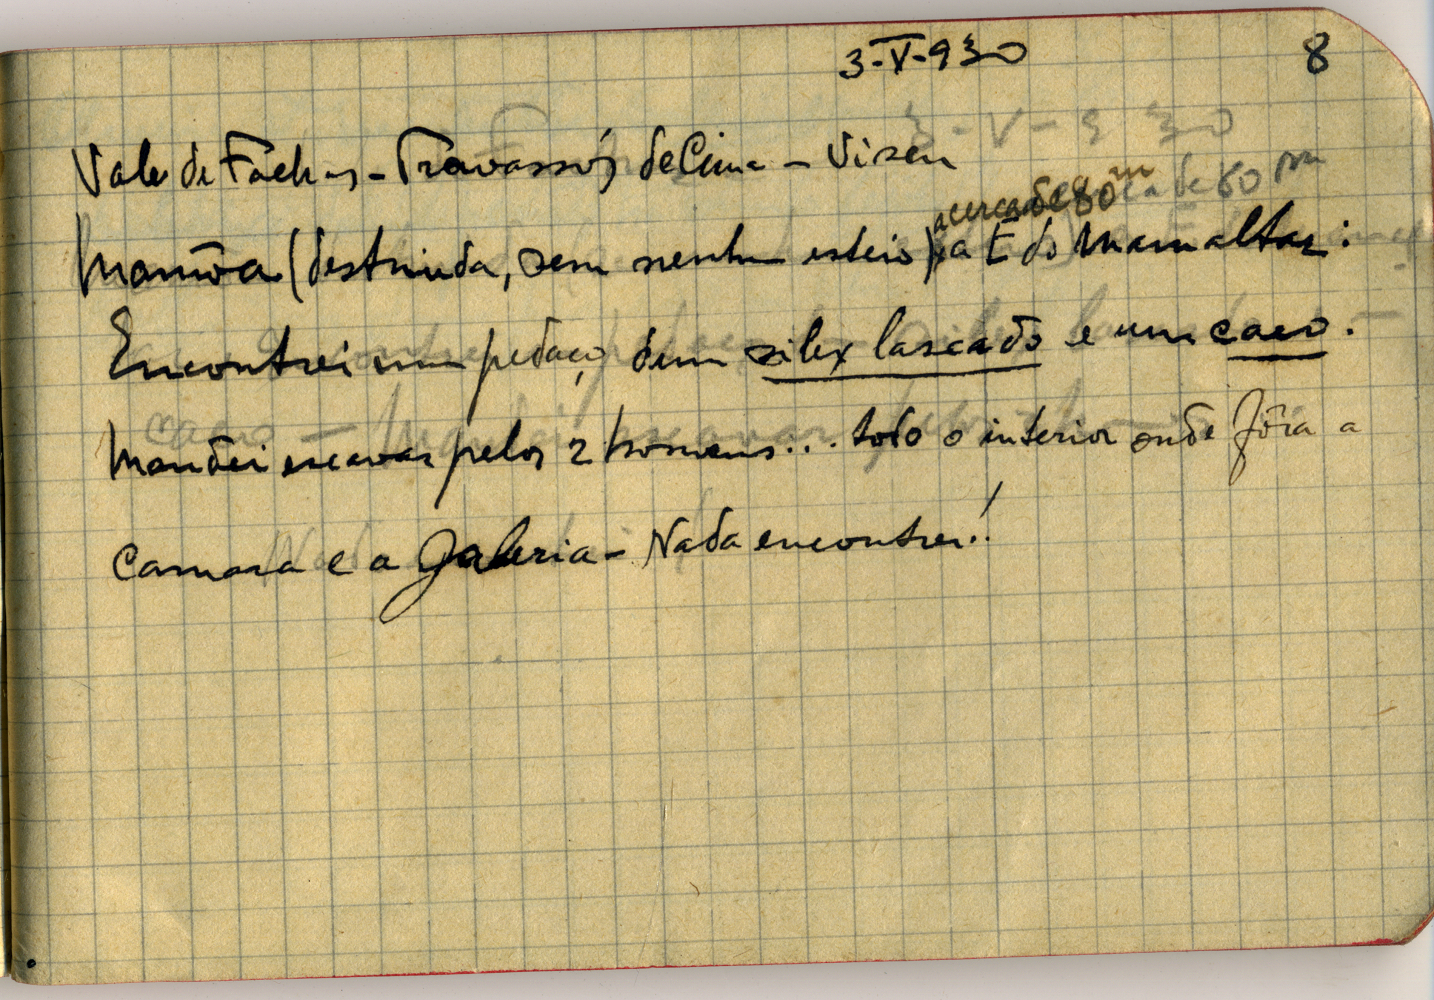 3-V-930
8
Vale de Fachas - Travassós de Cima - Viseu
a cerca de 80 m
Mamôa (destruida, sem nenhum esteio) a E do Mamaltar:
Encontrei um pedaço dum silex lascado e um caco.
Mandei escavar pelos 2 homens... todo o interior onde fôra a
camara e a galeria - Nada encontrei!